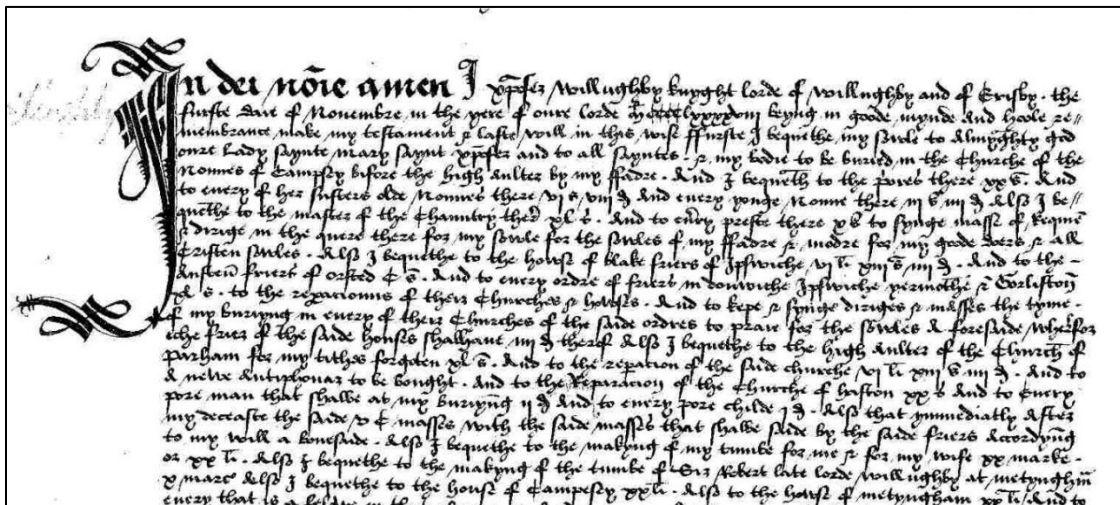 In dei nõie amen I xp̃ofer Willughby knyght lorde of Willughby and of Erisby . the
furste daie of Novembre in the yere of oure lorde lxxxxviii beyng in goode mynde And hoole re-
membrance make my testament & laste will in this wise ffurste I bequethe my sowle to Almyghty god
oure Lady saynte mary saynt xp̃ofer and to all sayntes . & my bodie to be buried in the Churche of the
Nonnes of Campsey bifore the high Aulter by my ffadre . And I bequeth to the p̃ores there xx s̃ . And
to every of her susters olde Nonnes there vi s viii d̃ And every yonge Nonne there iii s̃ iiii d̃ Also I be-
quethe to the master of the Chauntry ther̃ xl s̃ . And to every preste there to synge masse of Requiẽ
& dirige in the quere there for my sowle for the sowles of my ffadre & modre for my gode doers & all
Cristen sowles . Also I bequethe to the hows of blake friers of Ipswiche vi li xiii s̃ iiii d̃ . And to the -
Austeñ friers of orford C s̃ . And to every ordre of friers in donwiche Ipswiche yermothe & Gorlistoñ
xl s . to the reparacions of their Churches & howses . And to kepe & synge diriges & masses the tyme .
of my buriyng in every of their Churches of the saide ordres to praie for the sowles A foresaide wherfor
eche frier of the saide houses shall have iiii d̃ therof Also I bequethe to the high Aulter of the Church̃ of
Parham for my tithes forgoten xl s̃ . And to the repacion of the saide churche vi li xiii s̃ iiii d̃ . And to
A newe Antiphonar to be bought . And to the Reparacion of the Churche of hafton xx s̃ And to Every
pore man that shalbe at my buriyng̃ ii d̃ And to every pore childe i d̃ . Also that immediatly After
my deceasse the saide v C masses with the saide masses that shalbe saide by the saide friers Accordyng̃
to my will a bovesaide . Also I bequethe to the makyng of my tumbe for me & for my wife xx marke .
or xx li . Also I bequethe to the makyng of the tumbe of Sir Robert late lorde Willughby at metynghm̃
x marc̃ Also I bequethe to the hows of Campesey xx li . Also to the hows of metyngham xx li . And to
every that is